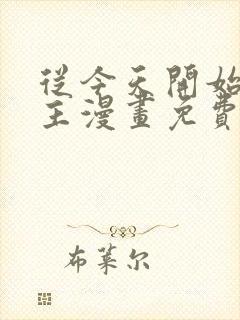 從今天開始
主漫畫免費
布萊尔